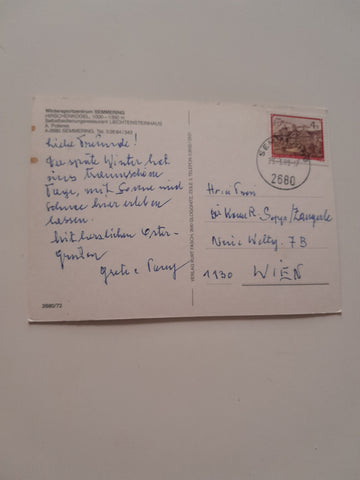 Wintersportzentrum SEMMERING
HIRSCHENKOGEL, 1000 - 1350 m
Selbstbedienungsrestaurant LIECHTENSTEINHAUS
A-2680 SEMMERING, Tel. 02664/343
Liebe Freunde!
Der späte Winter hat
uns traumschöne
Tage, mit Sonne und
Schnee hier erleben
lassen.
Mit herzlichen Oster-
grüßen
Grete u.
2680/72
VERLAG KURT FASCH, 2640 GLOGGNITZ, ZEILE 3, TELEFON
2680
Hr. u. Frau
7B
1130 WIEN